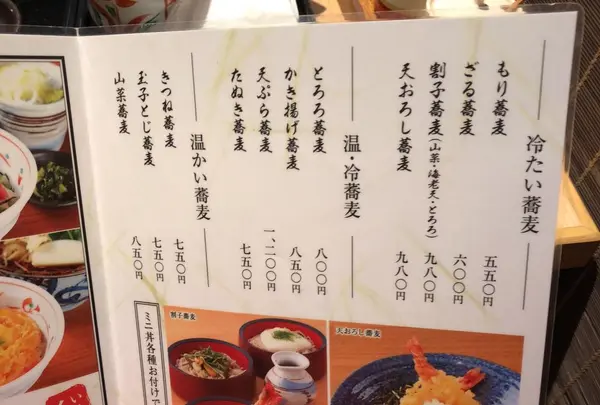 冷たい蕎麦
もり蕎麦 五五〇円
ざる蕎麦 六〇〇円
割子蕎麦(山菜・海老天・とろろ) 九八〇円
天おろし蕎麦 九八〇円
温・冷蕎麦
とろろ蕎麦 八〇〇円
かき揚げ蕎麦 八五〇円
天ぷら蕎麦 一、二〇〇円
たぬき蕎麦 七五〇円
温かい蕎麦
きつね蕎麦 七五〇円
玉子とじ蕎麦 七五〇円
山菜蕎麦 八五〇円
ミニ丼各種お付けで
割子蕎麦
天おろし蕎麦